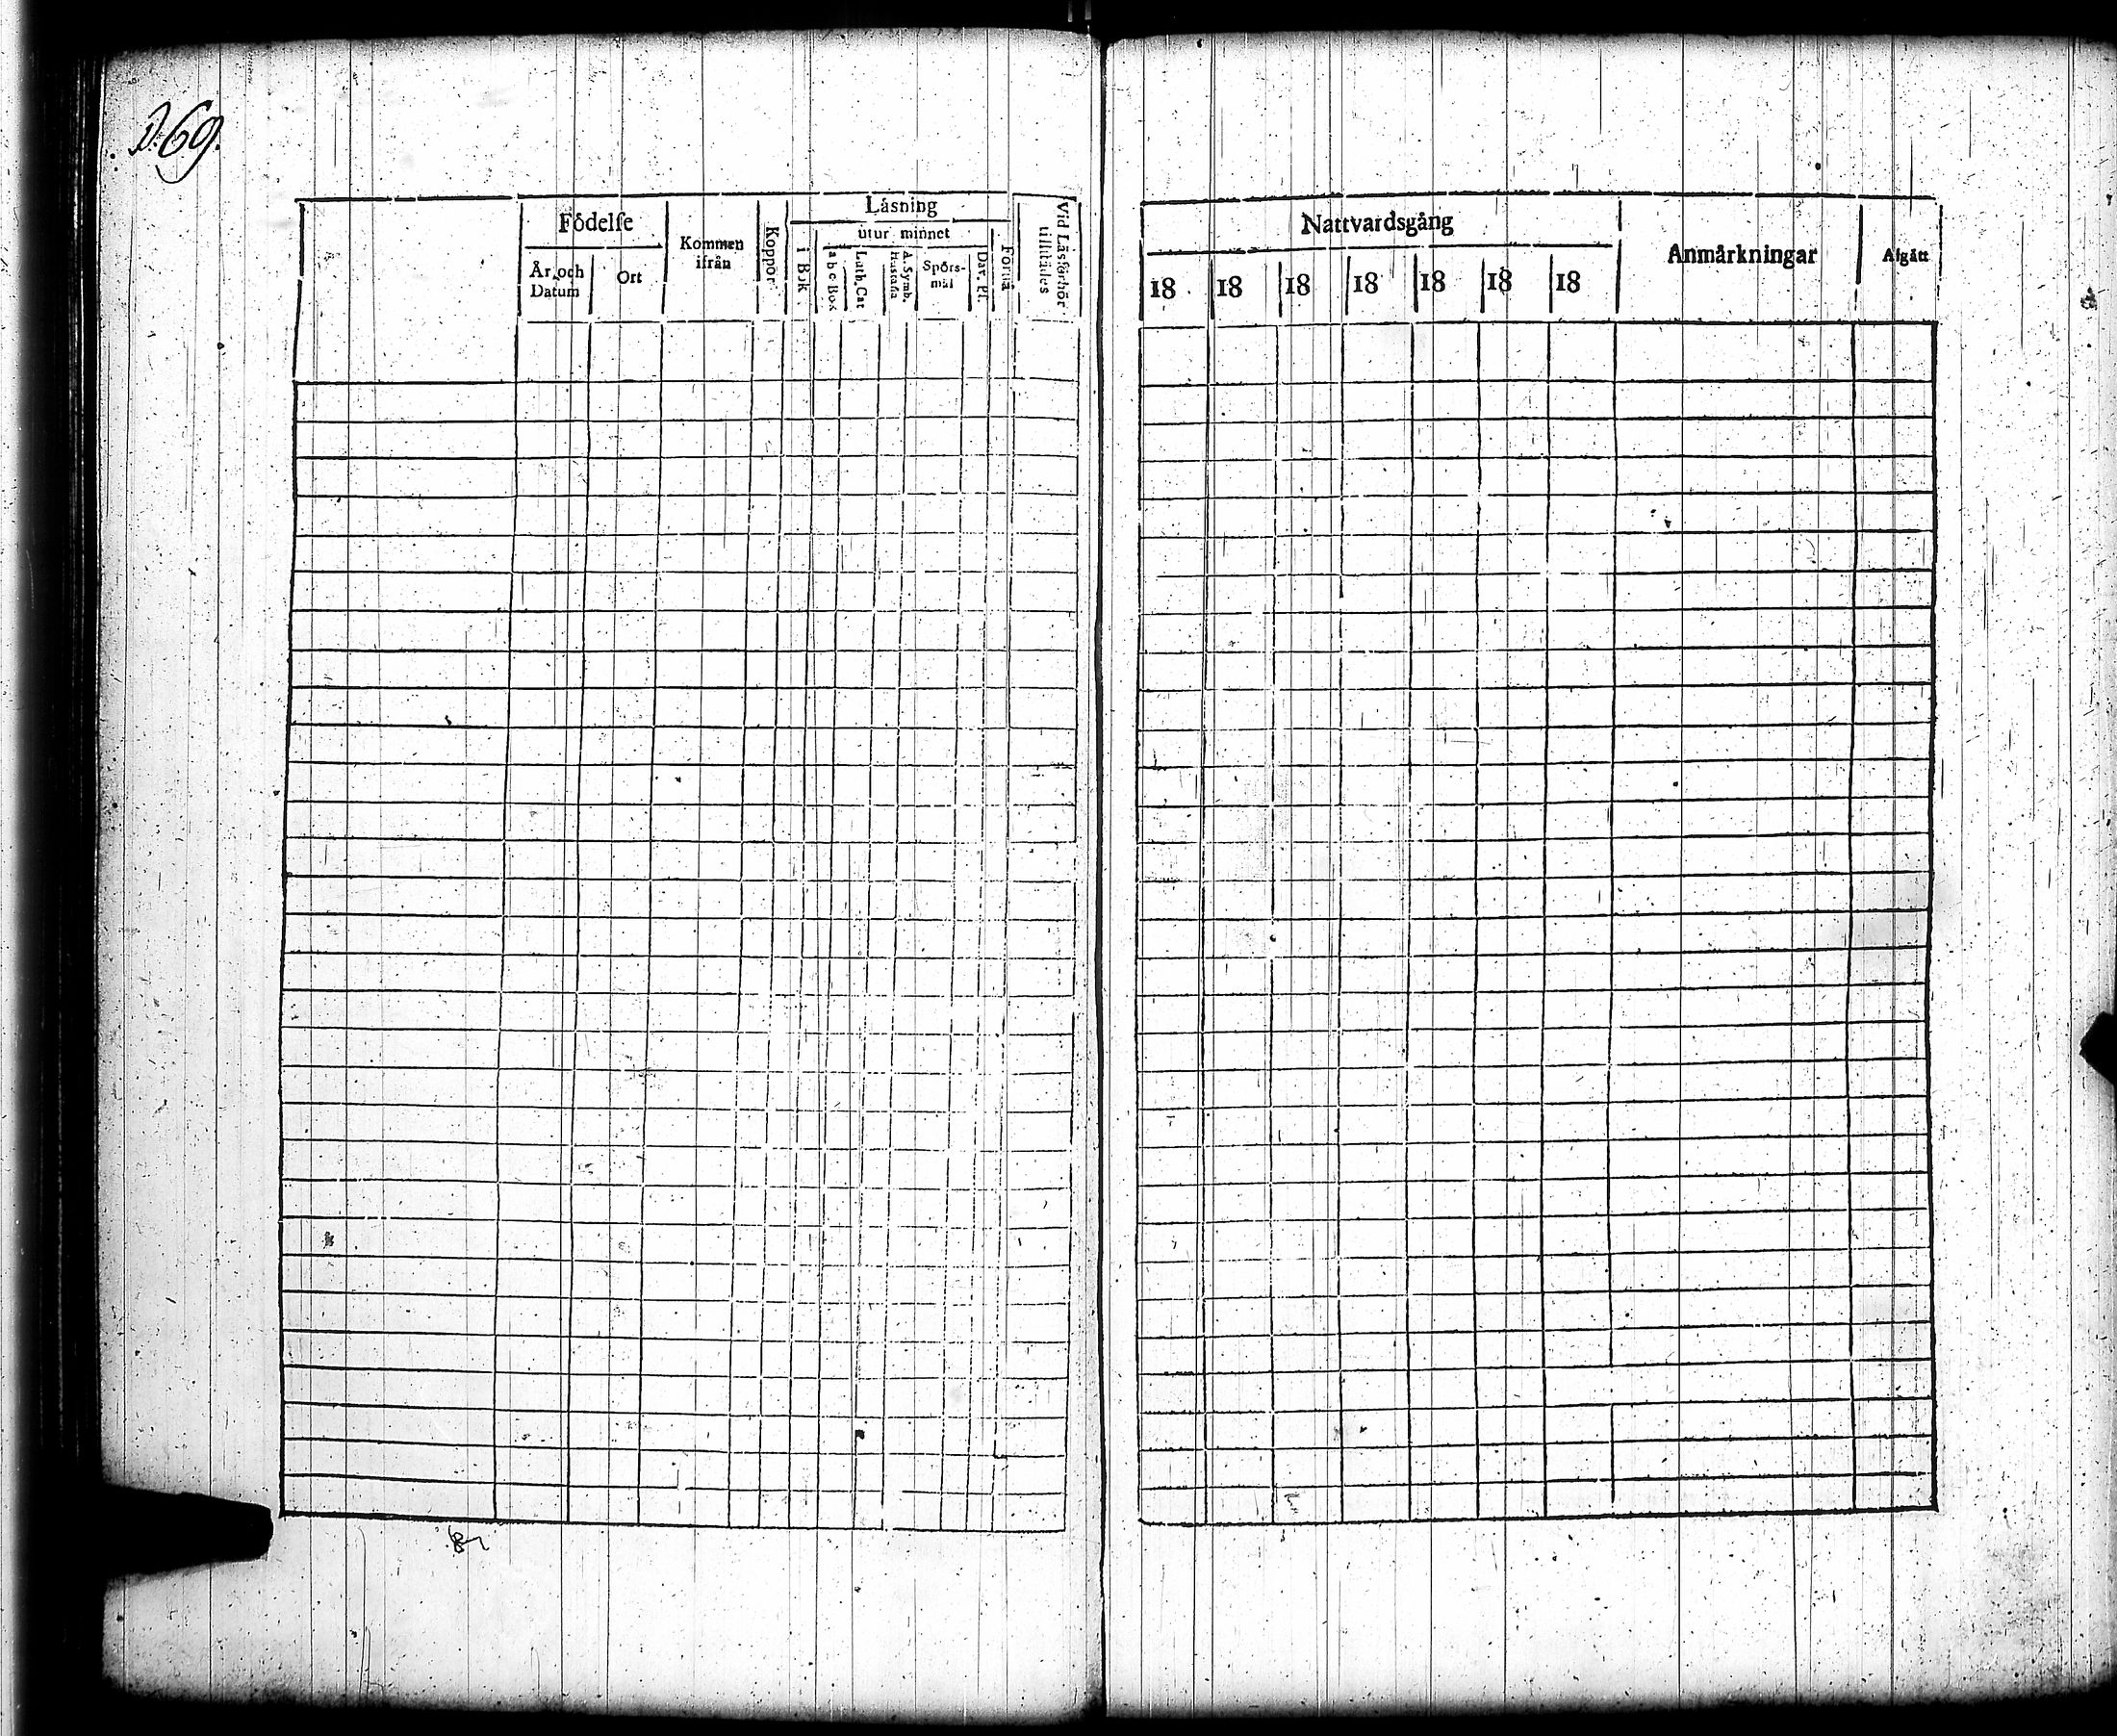 269.
Födelse
År och Datum
Ort
Kommen ifrån
Koppor
Läsning
i Bok
utur minnet
a b c Bok
Luth. Cat
A. Symb. Hustafla
Spörs-mål
Dav. Ps.
Förstå
Vid Läsförhör tillstädes
Nattvardsgång
18
18
18
18
18
18
18
Anmärkningar
Afgått